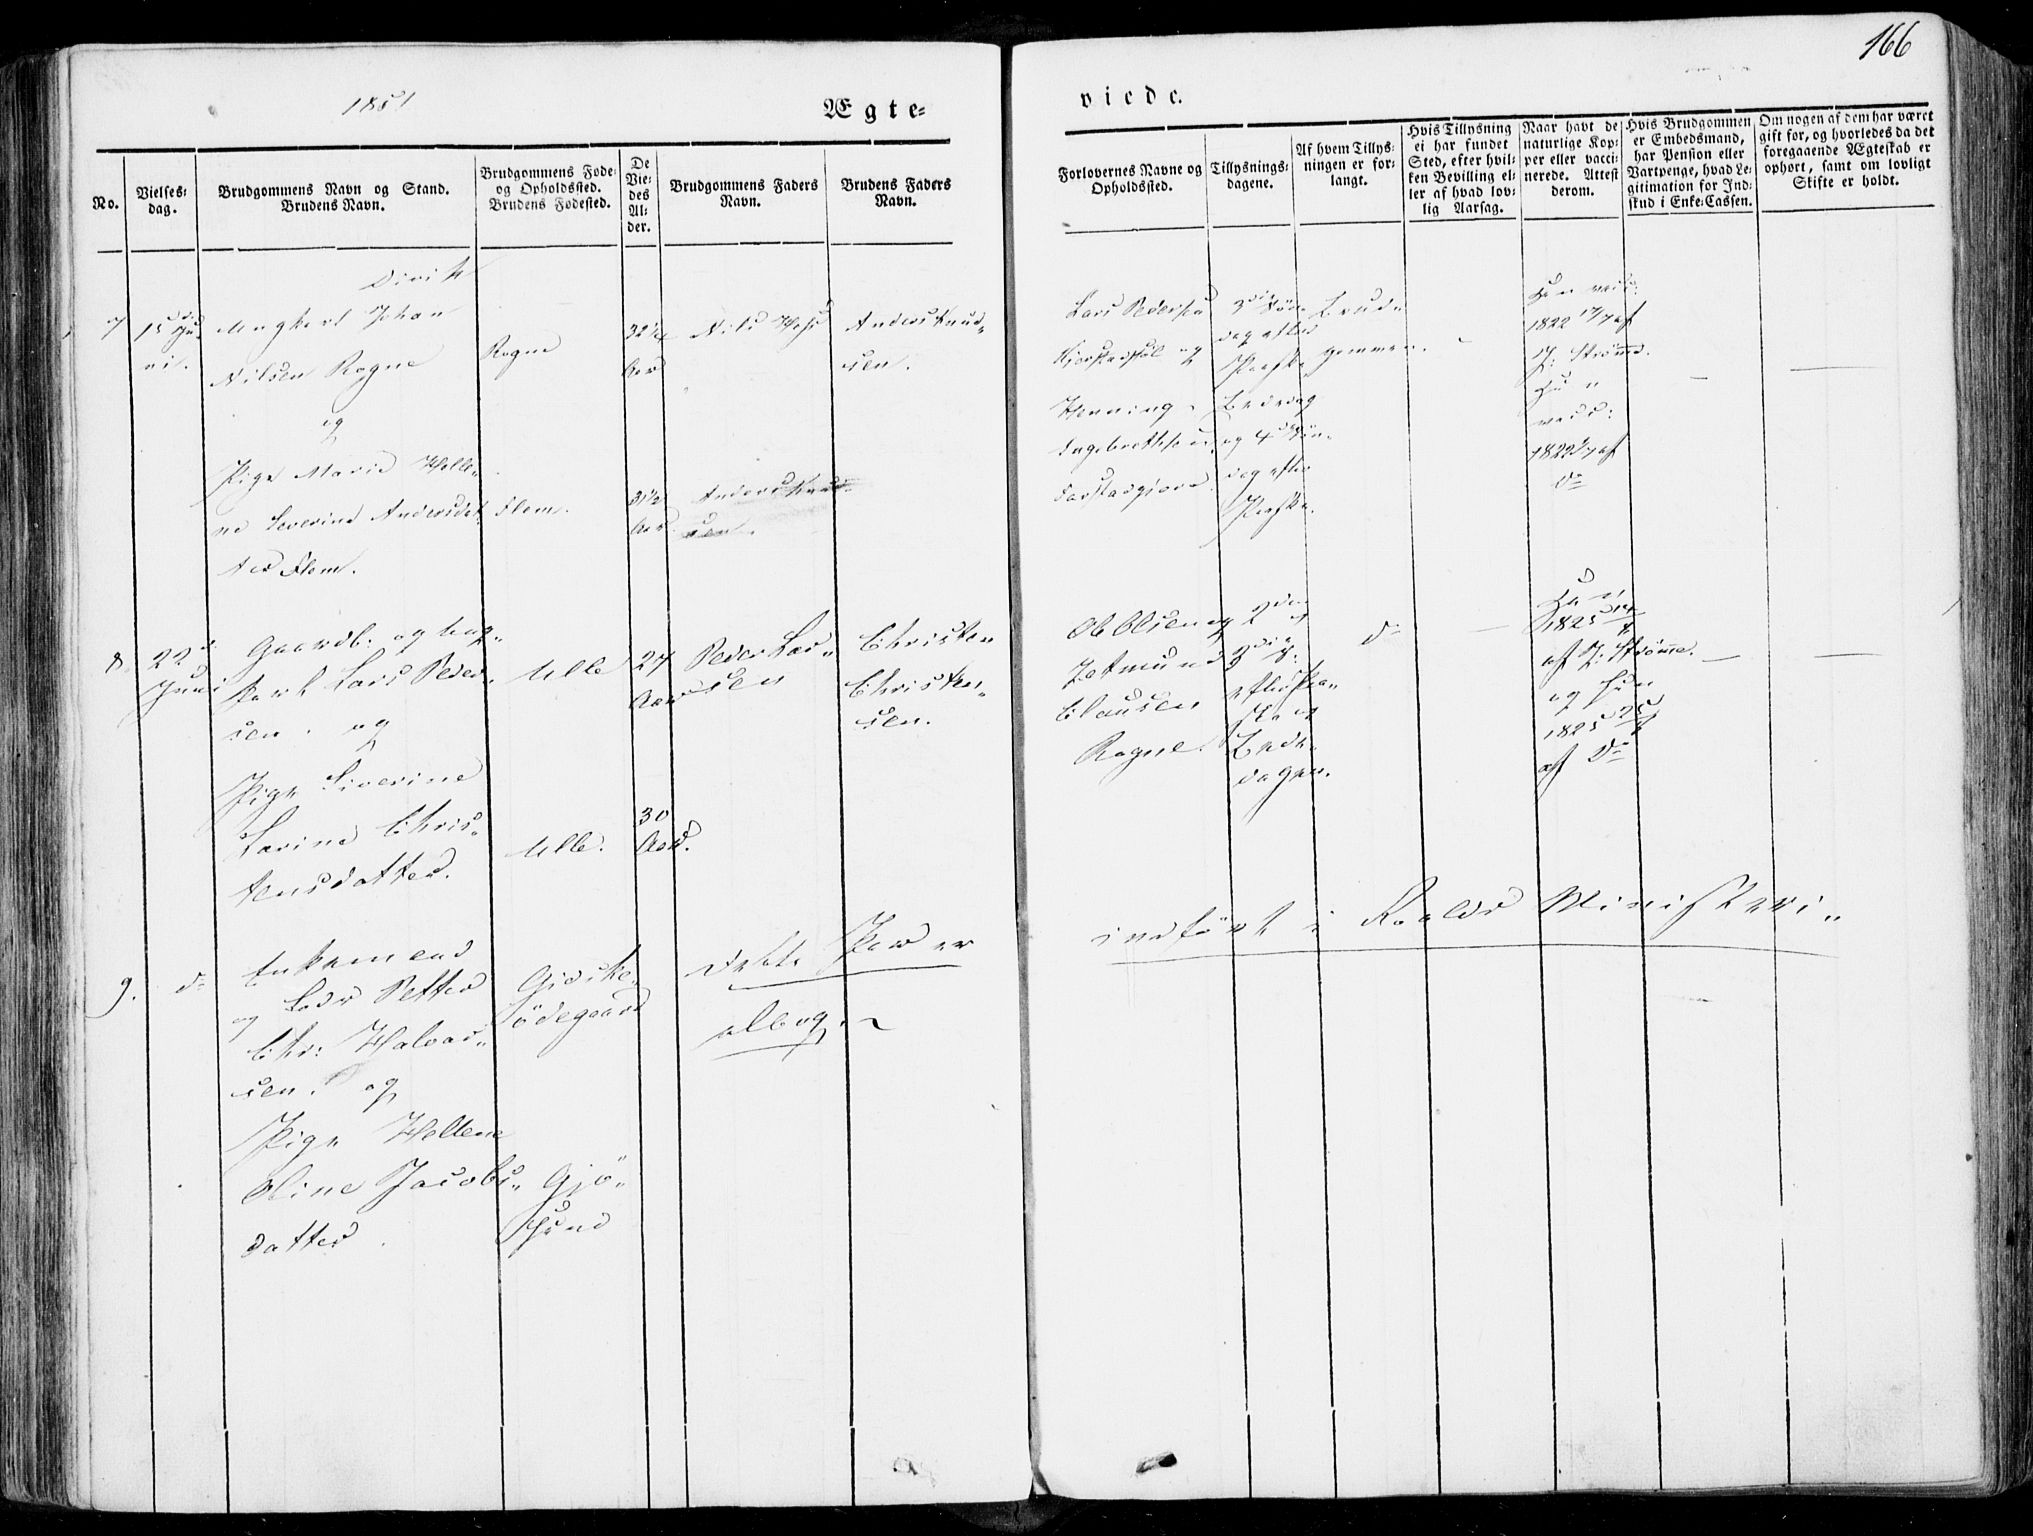 166
1851
Ægte-
viede.
No.
Vielses-
dag.
Brudgommens Navn og Stand.
Brudens Navn.
Brudgommens Føde-
og Opholdssted.
Brudens Fødested.
De
Vie-
des
Al-
der.
Brudgommens Faders
Navn.
Brudens Faders
Navn.
Forlovernes Navne og
Opholdssted.
Tillysnings-
dagene.
Af hvem Tillys-
ningen er for-
langt.
Hvis Tillysning
ei har fundet
Sted, efter hvil-
ken Bevilling el-
ler af hvad lov-
lig Aarsag.
Naar havt de
naturlige Kop-
per eller vacci-
nerede. Attest
derom.
Hvis Brudgommen
er Embedsmand,
har Pension eller
Vartpenge, hvad Le-
gitimation for Ind-
skud i Enke-Cassen.
Om nogen af dem har været
gift før, og hvorledes da det
foregaaende Ægteskab er
ophørt, samt om lovligt
Skifte er holdt.
7
15 Ju-
ni.
Ungkarl Johan
Nilsen Rogne
og
Pige Marie Helle-
ne Severine Andersdat-
ter Flem.
Rogne
Flem.
32 1/4
Aar
31 1/2
Aar.
Nils
Anders Knud-
sen.
Anders Knud-
sen.
Lars Pedersen
og
Henning
Ingebrethsen
3die Søn-
dag efter
Paaske,
Bededag
og 4 Søn-
dag efter
Paaske.
Brud-
gommen.
Han vacc:
1822 17/7 af
J. Strømme.
Hun
vacc:
1822 af
do
8.
22
Juni
Gaardb: og Ung-
karl Lars Peder-
sen. og
Pige Siverine
Larine Chris-
tensdatter.
Ulle
Ulle.
27
Aar
30
Aar.
Peder Lar-
sen
Christen
Christen-
sen.
Ole Olsen og
Clausen
Rogne.
2den
3die S:
efter Paa-
ske og
Bede-
dagen.
do
Han
1825
af J. Strømme.
og Hun
1825
af do
9.
do
Enkemand
og Petter
Chr: Halvor-
sen. og
Pige Hellene
Oline Jacobs-
datter.
Giske
Ødegaard
Gjø-
sund
dette Par er
indført i Roalds Ministeri-
albog.